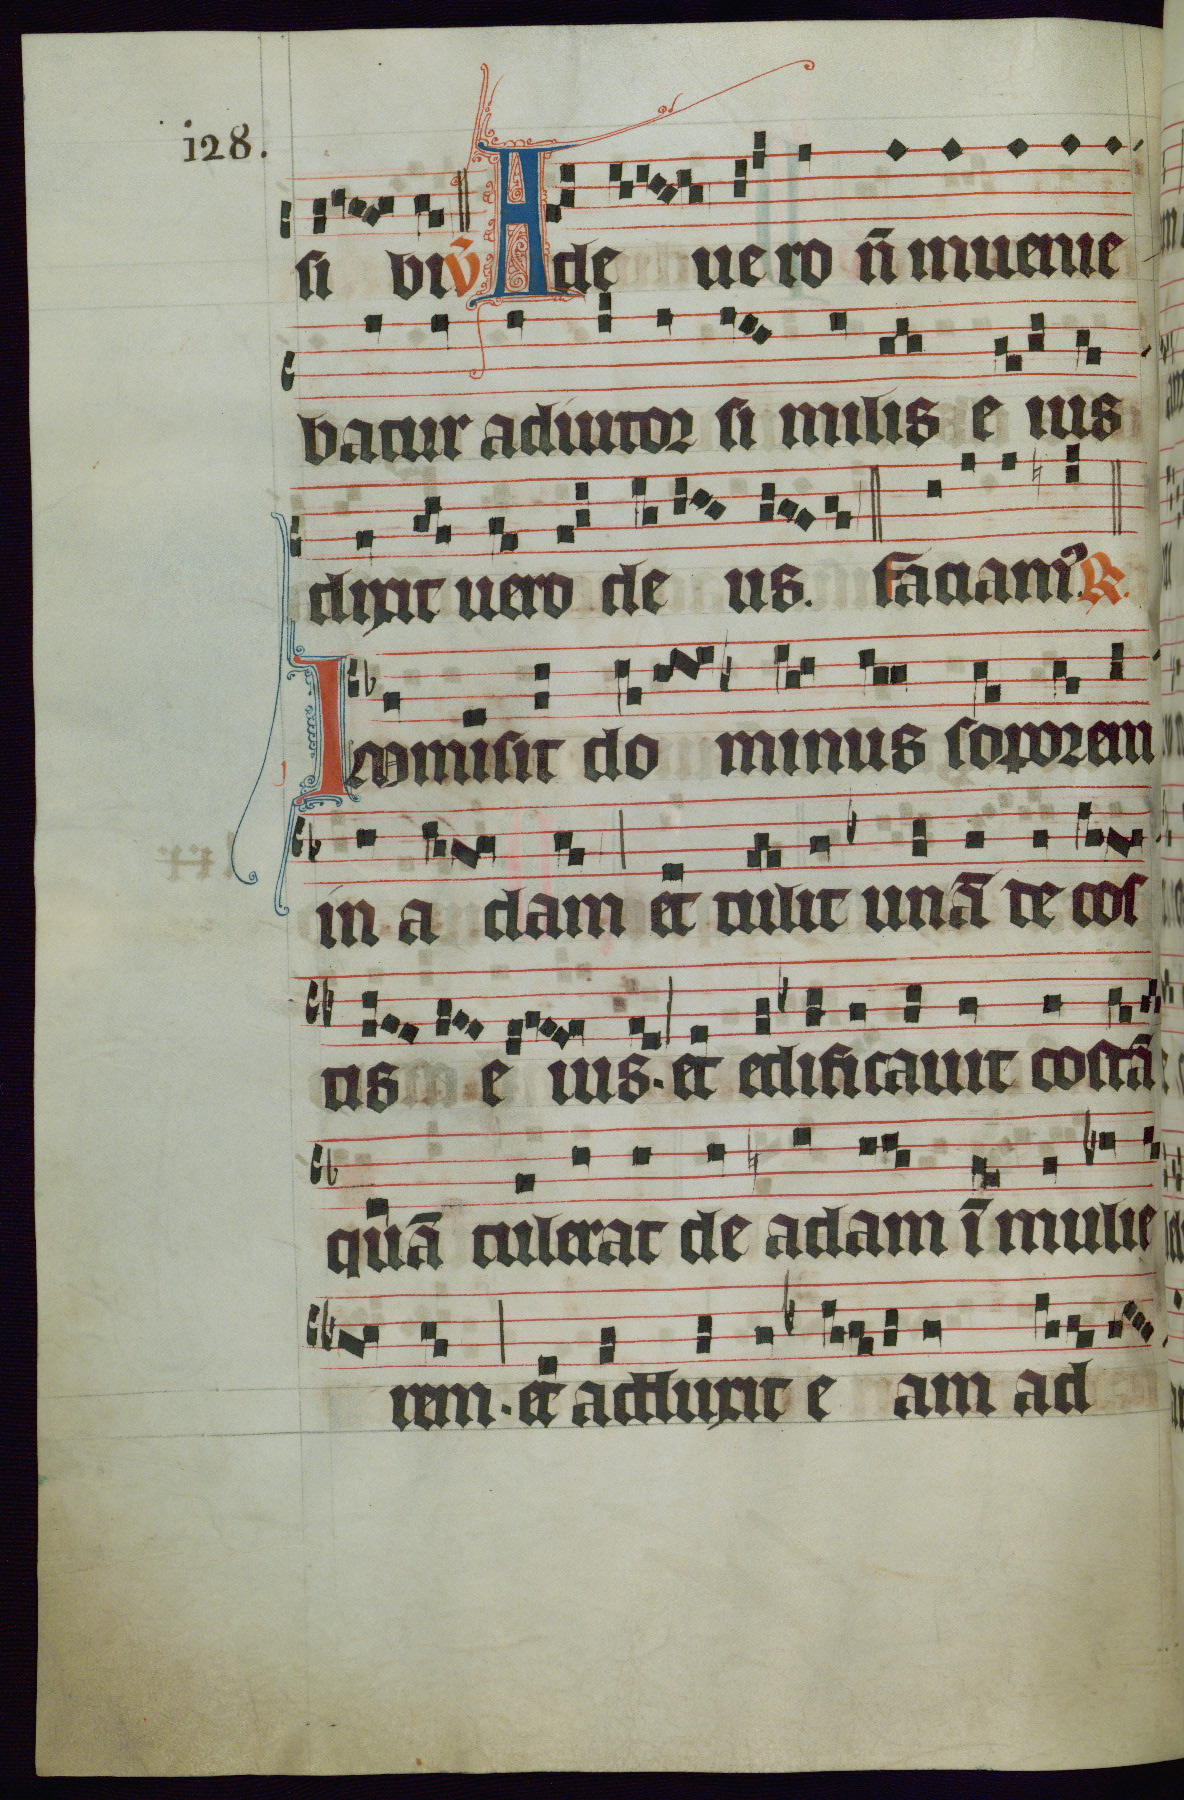 i28.
si bi ỹ Ade uero ñ inuenie
batur adiutor si milis e ius
dixit uero de us. faciam⁹ R.
Inmisit do minus soporem
in a dam et tulit unā de cos
tis e ius. et edificauit costā
quā tulerat de adam ī mulie
rem. et adduxit e am ad